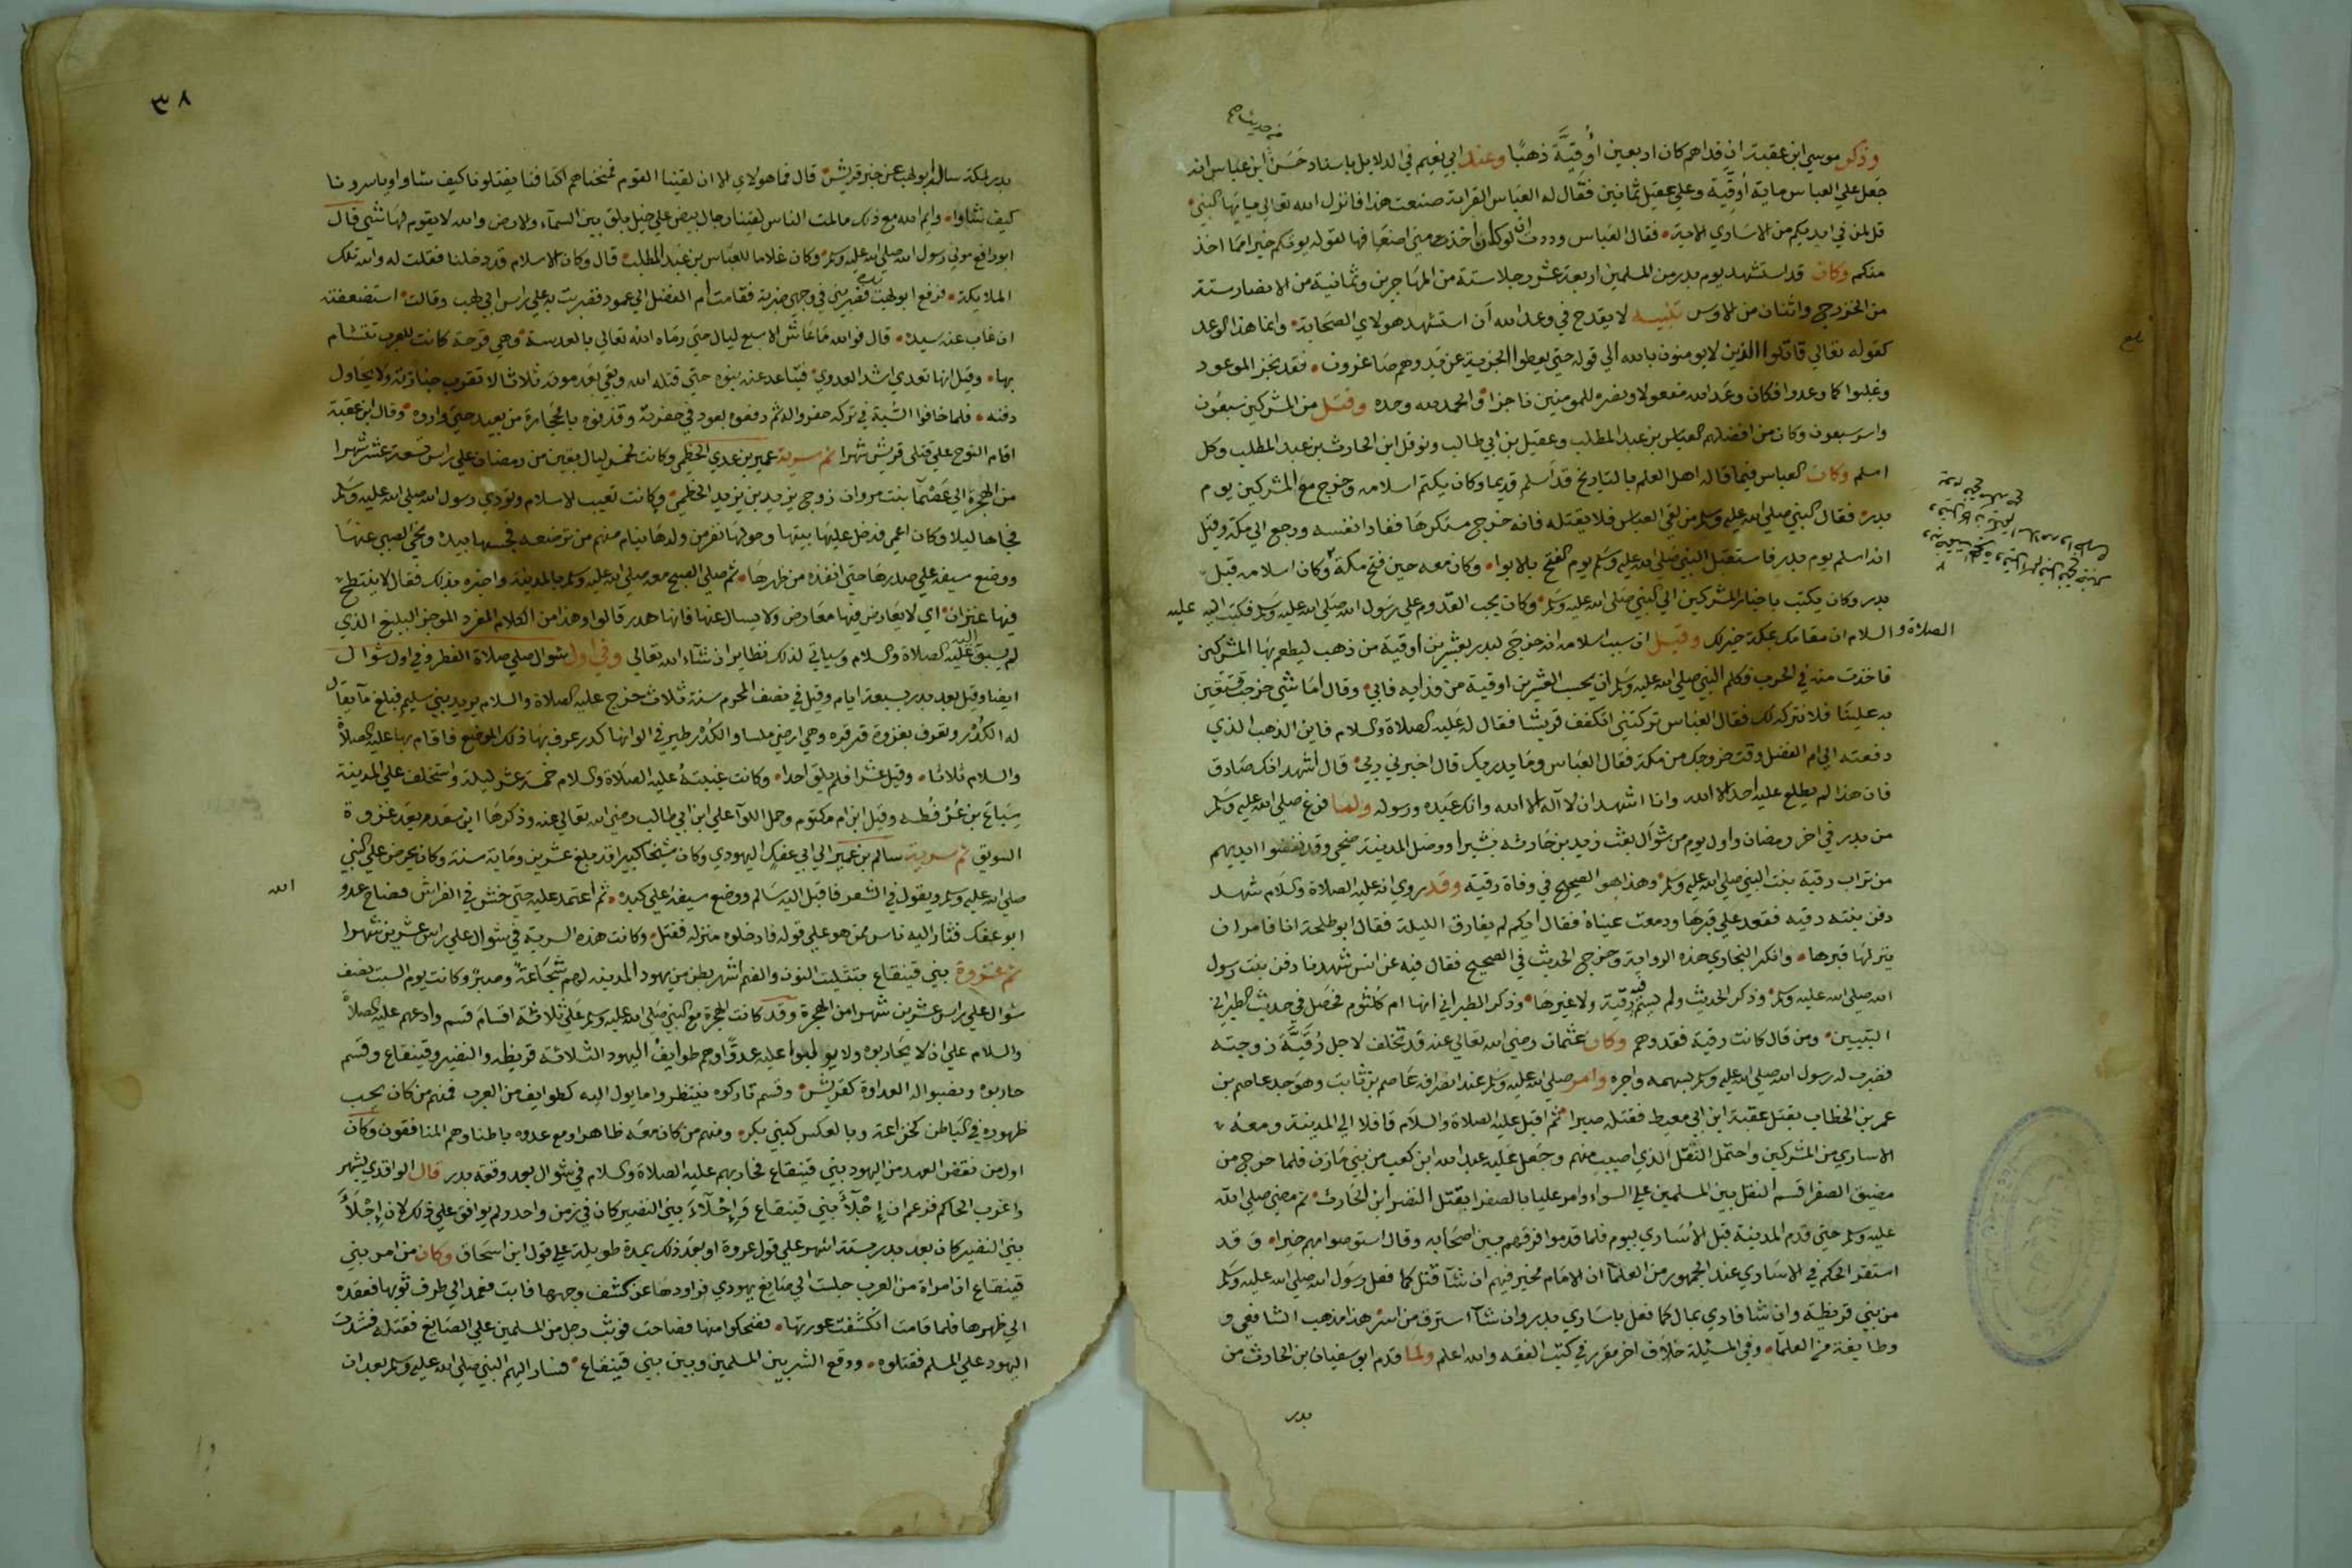 وذكر موسى ابن عقبة ان فداهم كان اربعين أوقيَّة ذهبًا وعند ابي نعيم في الدلايل باسناد حَسَن ابن عباس انه
جَعل علي العباس ماية أوقِيَّة وعلي عقيل ثمانين فقال له العبَّاس القرابة صنعت هذا فانزل الله تعالي ياايها النبي
قل لمن في ايديكم من الاساري الاية فقال العباس وددت ان لو كان اخذ مني اضعافها لقوله يوتكم خيرا مما اخذ
منكم وكان قد استشهد يوم بدر من المسلمين اربعة عشر رجلا ستة من المهاجرين وثمانية من الانصار ستة
من الخزرج واثنان من الاوس تنبيه لا يقدح في وعد الله أن استشهد هولاي الصحابة وانما هذا الوعد
كقوله تعالي قاتلوا الذين لا يومنون بالله الي قوله حتي يعطوا الجزية عن يد وهم صاغرون فقد نجز الموعود
وغلبوا كما وعدوا فكان وعد الله مفعولا ونصره للمومنين ناجزا والحمد لله وحده وقتل من المشركين سبعون
واسر سبعون وكان من افضلهم العباس بن عبد المطلب وعقيل بن ابي طالب ونوفل ابن الحارث بن عبد المطلب وكل
اسلم وكان العباس فيما قاله اهل العلم بالتاريخ قد أسلم قديما وكان يكتم اسلامه وخرج مع المشركين يوم
بدر فقال النبي صلي الله عليه وسلم من لقي العباس فلا يقتله فانه خرج مستكرها ففادا نفسه ورجع الي مكة وقيل
انه اسلم يوم بدر فاستقبل النبي صلي الله عليه وسلم يوم الفتح بالابوا وكان معه حين فتح مكة وكان اسلامه قبل
بدر وكان يكتب باخبار المشركين الي النبي صلي الله عليه وسلم وكان يحب القدوم علي رسول الله صلي الله عليه وسلم فكتب اليه عليه
الصلاة والسلام ان مقامك بمكة خير لك وقيل ان سبب اسلامه انه خرج لبدر بعشرين اوقية من ذهب ليطعم بها المشركين
فاخذت منه في الحرب فكلم النبي صلي الله عليه وسلم ان يحسب العشرين اوقية من فدايه فابي وقال أما شي خرجت تستعين
به علينا فلا نتركه لك فقال العباس تركتني اتكفف قريشا فقال له عليه الصلاة والسلام فاين الذهب الذي
دفعته الي ام الفضل وقت خروجك من مكة فقال العباس وما يدريك قال اخبرني ربي قال اشهد انك صادق
فان هذا لم يطلع عليه احد الا الله وانا اشهد ان لا اله الا الله وانك عبده ورسوله ولما فرغ صلي الله عليه وسلم
من بدر في اخر رمضان واول يوم من شوال بعث زيد بن حارثه بشيرا ووصل المدينة ضحي وقد نفضوا ايديهم
من تراب رقية بنت النبي صلي الله عليه وسلم وهذا هو الصحيح في وفاة رقية وقد روي انه عليه الصلاة والسلام شهد
دفن بنته رقيه فقعد علي قبرها ودمعت عيناه فقال ايكم لم يفارق الليلة فقال ابو طلحة انا فامر ان
ينزلها قبرها وانكر البخاري هذه الرواية وخرج الحديث في الصحيح فقال فيه عن انس شهدنا دفن بنت رسول
الله صلي الله عليه وسلم وذكر الحديث ولم يسم رقية ولا غيرها وذكر الطبراني انها ام كلثوم فحصل في حديث الطبراني
التبيين ومن قال كانت رقية فقد وهم وكان عثمان رضي الله تعالي عنه قد تخلف لاجل رُقَيَّة زوجته
فضرب له رسول الله صلي الله عليه وسلم بسهمه واجره وامر صلي الله عليه وسلم عند انصرافه عاصم بن ثابت وهو جد عاصم بن
عمر بن الخطاب بقتل عقبة ابن ابي معيط فقتله صبرا ثم اقبل عليه الصلاة والسلام قافلا الي المدينة ومعه
الاساري من المشركين واحتمل النفل الذي اصيب منهم وجعل عليه عبد الله ابن كعب من بني مازن فلما خرج من
مضيق الصفرا قسم النفل بين المسلمين علي السواء وامر عليا بالصفرا بقتل النضر ابن الحارث ثم مضي صلي الله
عليه وسلم حتي قدم المدينة قبل الأساري بيوم فلما قدموا فرقهم بين اصحابه وقال استوصوا بهم خيرا وقد
استقر الحكم في الاساري عند الجمهور من العلمآ ان الامام مخير فيهم ان شآ قتل كما فعل رسول الله صلي الله عليه وسلم
من بني قريظة وان شا فادي بمال كما فعل باساري بدر وان شآ استرق من اسر هذا مذهب الشافعي و
وطايفة من العلمآ وفي المسئلة خلاف اخر مقرر في كتب الفقه والله اعلم ولما قدم ابو سفيان بن الحارث من
بدر
٣٨
بدر لمكة ساله ابو لهب عن خبر قريش قال فما هولاي الا ان لقينا القوم فمنحناهم اكتافنا يقتلونا كيف شاوا وياسرونا
كيف شاوا وايم الله مع ذلك مالمت الناس لقينا رجال بيض علي خيل بلق بين السمآء والارض والله لا يقوم لها شي قال
ابو رافع مولي رسول الله صلي الله عليه وسلم وكان غلاما للعباس بن عبد المطلب قال وكان الاسلام قد دخلنا فقلت له والله تلك
الملايكة فرفع ابو لهب يده فضربني في وجهي ضربة فقامت ام الفضل الي عمود فضربت به علي راس ابي لهب وقالت استضعفته
ان غاب عنه سيده قال فوالله ما عاش الا سبع ليال حتي رماه الله تعالي بالعدسة وهي قرحة كانت العرب تتشام
بها وقيل انها تعدي اشد العدوي فتباعد عنه بنوه حتي قتله الله وبقي بعد موته ثلاثا لا تقرب جنازته ولا يحاول
دفنه فلما خافوا السبة في تركه حفروا له ثم دفعوه بعود في حفرته وقذفوه بالحجارة من بعيد حتي واروه وقال ابن عقبة
اقام النوح علي قتلي قريش شهرا ثم سرية عمير بن عدي الخطمي وكانت لخمس ليال بقين من رمضان علي راس تسعة عشر شهرا
من الهجرة الي عصمآ بنت مروان زوج يزيد بن يزيد الخطمي وكانت تعيب الاسلام وتوذي رسول الله صلي الله عليه وسلم
فجاها ليلا وكان اعمي فدخل عليها بيتها وحولها نفر من ولدها نيام منهم من ترضعه فجسها بيده ونحي الصبي عنها
ووضع سيفه علي صدرها حتي انفذه من ظهرها ثم صلي الصبح معه صلي الله عليه وسلم بالمدينة واخبره بذلك فقال لا ينتطح
فيها عنزان اي لا يعارض فيها معارض ولا يسال عنها فانها هدر قالوا وهذا من الكلام المفرد الموجز البليغ الذي
لم يسبق اليه عليه الصلاة والسلام وسياتي لذلك نظاير ان شآء الله تعالي وفي اول شوال صلي صلاة الفطر وفي اول شوال
ايضا وقيل بعد بدر بسبعة ايام وقيل في نصف المحرم سنة ثلاث خرج عليه الصلاة والسلام يريد بني سليم فبلغ مآ يقال
له الكُدْر وتعرف بغزوة قرقره وهي ارض ملسا والكُدْر طير في الوانها كدر عرف بها ذلك الموضع فاقام بها عليه الصلاة
والسلام ثلاثا وقيل عشرا فلم يلق احدا وكانت غيبته عليه الصلاة والسلام خمسة عشر ليلة واستخلف علي المدينة
سِبَاعَ بن عُرْفُطه وقيل ابن ام مكتوم وحمل اللوآ علي ابن ابي طالب رضي الله تعالي عنه وذكرها ابن سعد بعد غزوة
السويق ثم سرية سالم بن عمير الي ابي عفك اليهودي وكان شيخا كبيرا قد بلغ عشرين وماية سنة وكان يحرض علي النبي
صلي الله عليه وسلم ويقول في الشعر فاقبل اليه سالم ووضع سيفه علي كبده ثم اعتمد عليه حتي خش في الفراش فصاح عدو
الله
ابو عفك فثار اليه ناس ممن هو علي قوله فادخلوه منزله فقتل وكانت هذه السرية في شوال علي راس عشرين شهرا
ثم غزوة بني قينقاع بتثليث النون والضم اشهر بطن من يهود المدينه لهم شجاعة وصبر وكانت يوم السبت نصف
شوال علي راس عشرين شهرا من الهجرة وقد كانت الهجرة مع النبي صلي الله عليه وسلم علي ثلاثة اقسام قسم وادعهم عليه الصلاة
والسلام علي ان لا يحاربوه ولا يولبوا عليه عدوًا وهم طوايف اليهود الثلاثة قريظه والنضير وقينقاع وقسم
حاربوه ونصبوا له العداوة كقريش وقسم تاركوه وينتظروا ما يول اليه كطوايف من العرب فمنهم من كان يحب
ظهوره في الباطن كخزاعة وبالعكس كبني بكر ومنهم من كان معه ظاهرا ومع عدوه باطنا وهم المنافقون وكان
اول من نقض العهد من اليهود بني قينقاع فحاربهم عليه الصلاة والسلام في شوال بعد وقعة بدر قال الواقدي بشهر
واغرب الحاكم فزعم ان إجْلآَء بني قينقاع وَإجْلآءَ بني النضير كان في زمن واحد ولم يوافق علي ذلك لان إجْلآَء
بني النضير كان بعد بدر بستة اشهر علي قول عروة او بعد ذلك بمدة طويلة علي قول ابن اسحاق وكان من امر بني
قينقاع ان امراة من العرب جلست الي صايغ يهودي فراودها عن كشف وجهها فابت فعمد الي طرف ثوبها فعقده
الي ظهرها فلما قامت انكشفت عورتها فضحكوا منها فصاحت فوثب رجل من المسلمين علي الصايغ فقتله فشدت
اليهود علي المسلم فقتلوه ووقع الشر بين المسلمين وبين بني قينقاع فسار اليهم النبي صلي الله عليه وسلم بعد ان